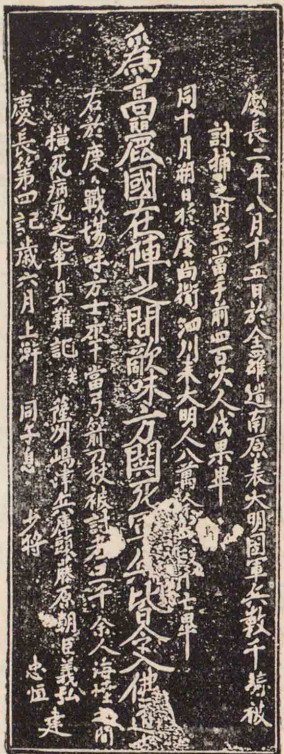 慶長二年八月十五日於全羅道南原表大明国軍兵數千騎被
討捕之内至當手前四百廿人伐果畢
同十月朔日於慶尚道泗川表大明人八萬余兵擊亡畢
為高麗國在陣之間敵味方閧死軍兵皆令入佛道也
右於度々戰場味方士卒當弓箭刀杖被討者三千余人海陸之間
横死病死之軍兵難記矣
薩州嶋津兵庫頭藤原朝臣義弘建
慶長第四 歳六月上澣 同子息 少将 忠恒